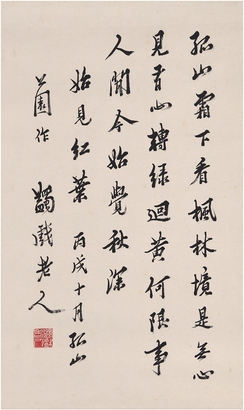 孤山霜下看楓林境是无心
見心轉綠迴黃何限事
人間今始覺秋深
始見紅葉 丙戌十月孤山
公園作 蠲戲老人